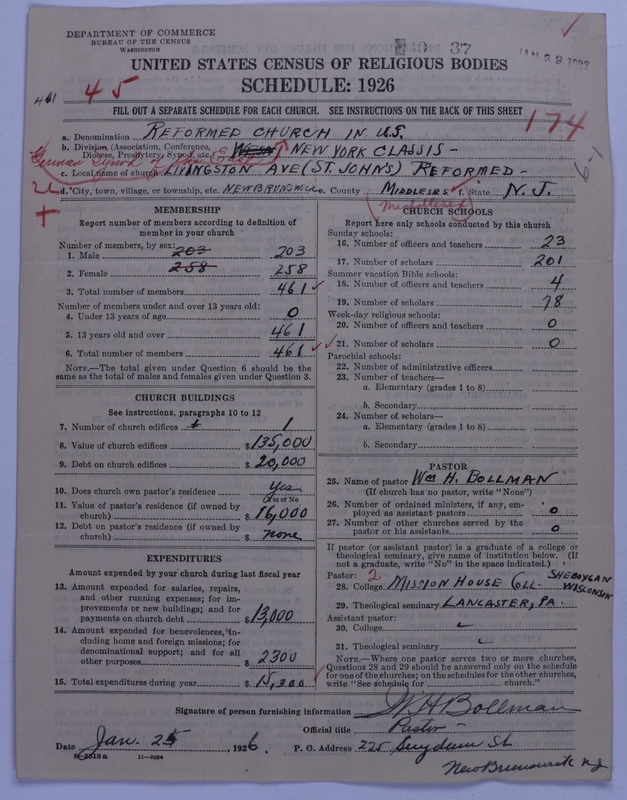 DEPARTMENT OF COMMERCE
BUREAU OF THE CENSUS
WASHINGTON
37
JAN 28 1927
UNITED STATES CENSUS OF RELIGIOUS BODIES
SCHEDULE: 1926
461
45
FILL OUT A SEPARATE SCHEDULE FOR EACH CHURCH. SEE INSTRUCTIONS ON THE BACK OF THIS SHEET
174
a. Denomination REFORMED CHURCH IN U.S.
b. Division (Association, Conference, Diocese, Presbytery, Synod, etc.) NEW YORK CLASSIS -
German Synod of the East
c. Local name of church LIVINGSTON AVE (ST. JOHNS) REFORMED -
d. City, town, village, or township, etc. NEW BRUNSWICK e. County MIDDLESES f. State N.J.
Middlesex
MEMBERSHIP
Report number of members according to definition of
member in your church
Number of members, by sex:
1. Male 203 203
2. Female 258 258
3. Total number of members 461
Number of members under and over 13 years old:
4. Under 13 years of age 0
5. 13 years old and over 461
6. Total number of members 461
NOTE.—The total given under Question 6 should be
the same as the total of males and females given under Question 3.
CHURCH BUILDINGS
See instructions, paragraphs 10 to 12
7. Number of church edifices 1
8. Value of church edifices $135,000
9. Debt on church edifices $20,000
10. Does church own pastor's residence yes
Yes or No
11. Value of pastor's residence (if owned by
church) $16,000
12. Debt on pastor's residence (if owned by
church) $none
EXPENDITURES
Amount expended by your church during last fiscal year
13. Amount expended for salaries, repairs,
and other running expenses; for im-
provements or new buildings; and for
payments on church debt $13,000
14. Amount expended for benevolences, in-
cluding home and foreign missions; for
denominational support; and for all
other purposes $2300
15. Total expenditures during year $15,300
CHURCH SCHOOLS
Report here only schools conducted by this church
Sunday schools:
16. Number of officers and teachers 23
17. Number of scholars 201
Summer vacation Bible schools:
18. Number of officers and teachers 4
19. Number of scholars 78
Week-day religious schools:
20. Number of officers and teachers 0
21. Number of scholars 0
Parochial schools:
22. Number of administrative officers
23. Number of teachers—
a. Elementary (grades 1 to 8)
b. Secondary
24. Number of scholars—
a. Elementary (grades 1 to 8)
b. Secondary
PASTOR
25. Name of pastor Wm H. BOLLMAN
(If church has no pastor, write "None")
26. Number of ordained ministers, if any, em-
ployed as assistant pastors 0
27. Number of other churches served by the
pastor or his assistants 0
If pastor (or assistant pastor) is a graduate of a college or
theological seminary, give name of institution below. (If
not a graduate, write "No" in the space indicated.)
Pastor: 2
28. College MISSION HOUSE COLL - SHEBOYGAN WISCONSIN
29. Theological seminary LANCASTER, PA.
Assistant pastor:
30. College
31. Theological seminary
NOTE.—Where one pastor serves two or more churches,
Questions 28 and 29 should be answered only on the schedule
for one of the churches; on the schedules for the other churches,
write "See schedule for church."
Signature of person furnishing information W. H. Bollman
Official title Pastor -
Date Jan. 25, 1926. P. O. Address 225 Suydam St
New Brunswick NJ
8-5518a 11-9054